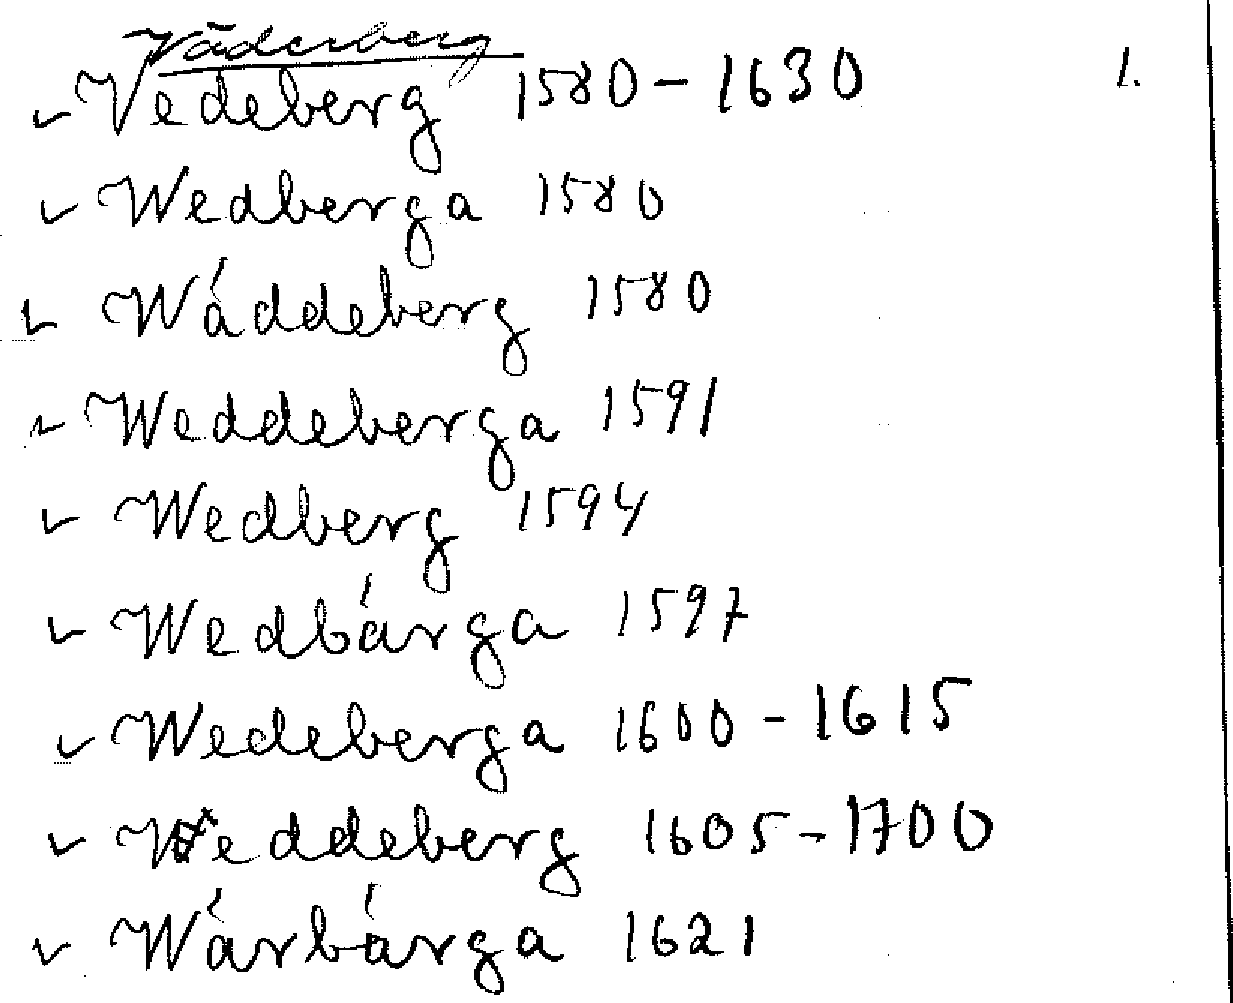 Väderberg
Vedeberg 1580-1630 1.
Wedberga 1580
Wáddeberg 1580
Weddeberga 1591
Wedberg 1594
Wedbárga 1597
Wedeberga 1600-1615
Weddeberg 1605-1700
Wárbárga 1621